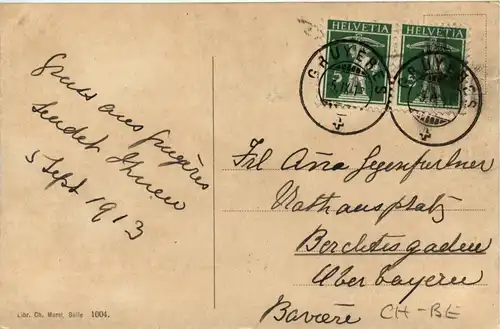 Gruss aus Gruyères
sendet Ihnen
5 Sept 1913
HELVETIA HELVETIA
GRUYERES
5
Frl Anna Segenfurtner
Rathausplatz
Berchtesgaden
Oberbayern
Bavière
CH-BE
Libr. Ch. Morel, Bulle 1004.